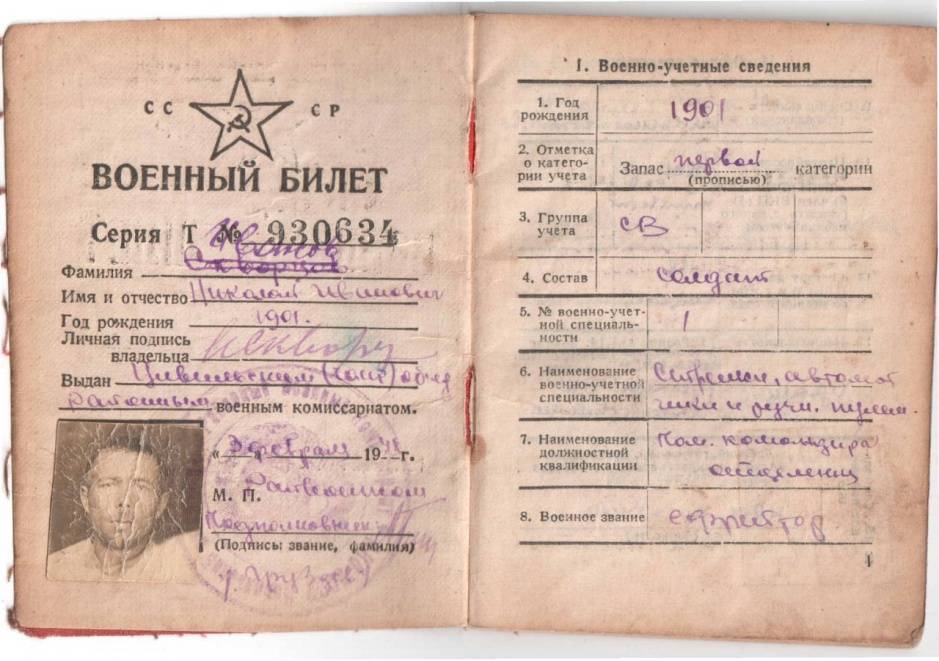 СС СР
ВОЕННЫЙ БИЛЕТ
Серия Т № 930634
Фамилия Скворцов
Имя и отчество Николай Иванович
Год рождения 1901.
Личная подпись
владельца
Выдан Цивильским
районным военным комиссариатом.
" 3 " февраля 1948 г.
М. П. Райвоенком
Подполковник
(Подпись звание, фамилия)
1. Военно-учетные сведения
1. Год
рождения
1901
2. Отметка
о катего-
рии учета
Запас первой категории
(прописью)
3. Группа
учета
СВ
4. Состав
солдат
5. № военно-учет-
ной специаль-
ности
1
6. Наименование
военно-учетной
специальности
Стрелки, автомат
чики и ручн. пулем.
7. Наименование
должностной
квалификации
Пом. командира
отделения
8. Военное звание
ефрейтор